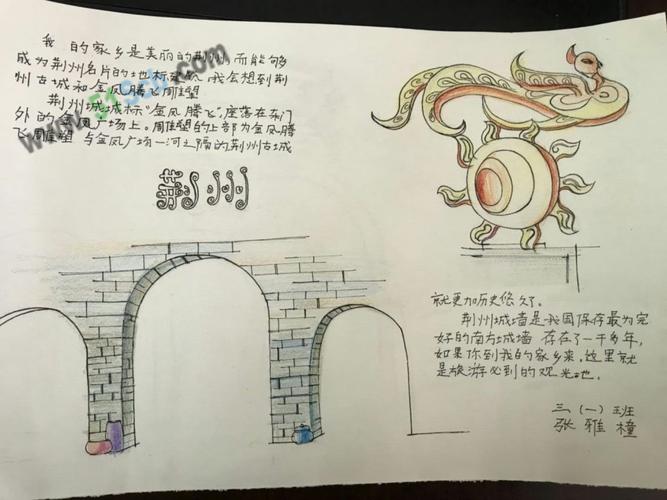 我的家乡是美丽的荆州,而能够
成为荆州名片的地标建筑,我会想到荆
州古城和金凤腾飞雕塑
荆州城城标“金凤腾飞”,座落在东门
外的金凤广场上。雕塑的上部为金凤腾
飞雕塑 与金凤广场一河之隔的荆州古城
荆州
就更加历史悠久了。
荆州城墙是我国保存最为完
好的南方城墙 存在了一千多年,
如果你到我的家乡来,这里就
是旅游必到的观光地。
三(一)班
张雅橦